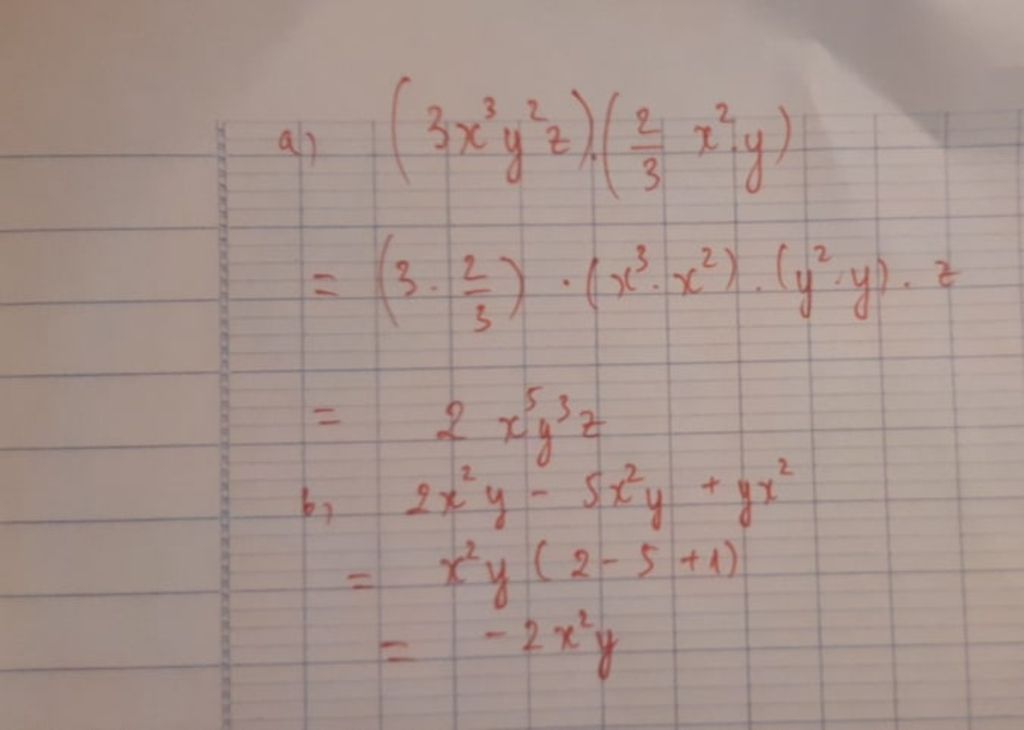 a) (3x³y²z).(2/3 x².y)
= (3 . 2/3) . (x³. x²) . (y². y) . z
= 2 x⁵y³z
b, 2x²y - 5x²y + yx²
= x²y (2 - 5 + 1)
= - 2x²y